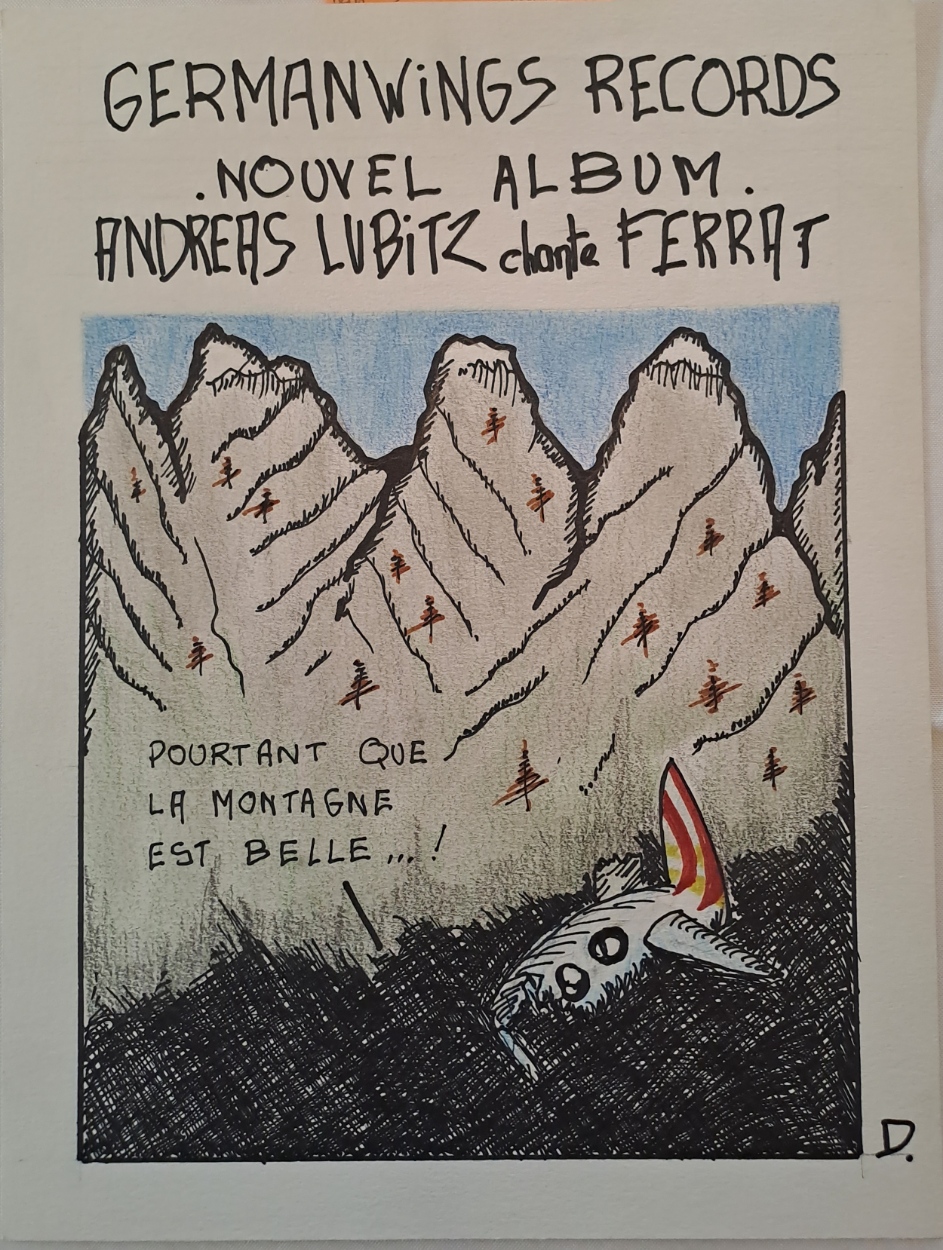 GERMANWiNGS RECORDS
.NOUVEL ALBUM.
ANDREAS LUBiTZ chante FERRAT
POURTANT QUE
LA MONTAGNE
EST BELLE...!
D.